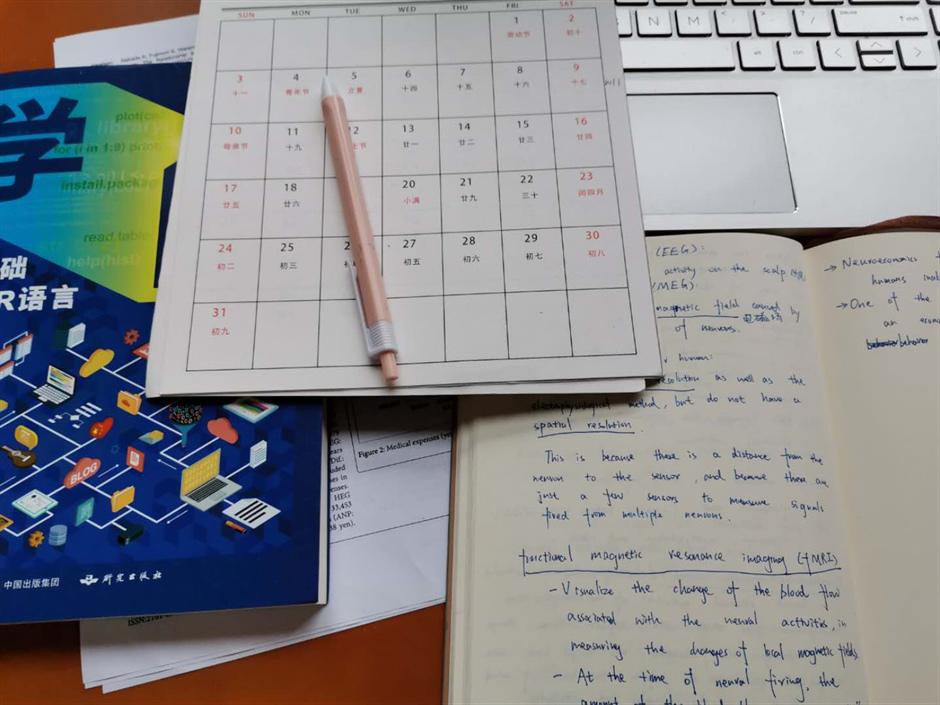 SUN MON TUE WED THU FRI SAT
1 2
劳动节 初十
3 4 5 6 7 8 9
十一 青年节 立夏 十四 十五 十六 十七
10 11 12 13 14 15 16
母亲节 十九 廿一 廿二 廿三 廿四
17 18 20 21 22 23
廿五 廿六 小满 廿九 三十 闰四月
24 25 27 28 29 30
初二 初三 初五 初六 初七 初八
31
初九
学
plot(ca
library
for (i in 1:9) print(
install.packag
read.table
help(hist)
础
R语言
BLOG
中国出版集团 研究出版社
Figure 2: Medical expenses (ye
HEG
33,453
(ANP:
38 yen).
N M
alt ctrl
(EEG):
activity on the scalp
(MEG):
magnetic field caused by
of neurons.
human:
resolution as well as the
electrophysiological method, but do not have a
spatial resolution.
This is because there is a distance from the
neuron to the sensor, and because there are
just a few sensors to measure signals
fired from multiple neurons.
functional magnetic resonance imaging (fMRI)
- Visualize the change of the blood flow
associated with the neural activities, in
measuring the changes of local magnetic fields.
- At the time of neural firing, the
→ Neuroeconomics
humans
→ One of the
an
behavior